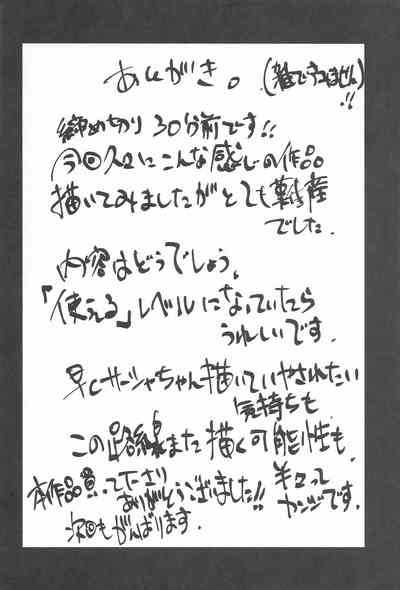 あとがき。(雑ですみません)!!
締め切り30分前です!!
今回久々にこんな感じの作品
描いてみましたがとても難産
でした.
内容はどうでしょう、
「使える」レベルになっていたら
うれしいです.
早くサーシャちゃん描いていやされたい
気持ちも
この路線また描く可能性も.
半々って
カンジです.
本作品買って下さり
ありがとうございました!!
次回もがんばります.